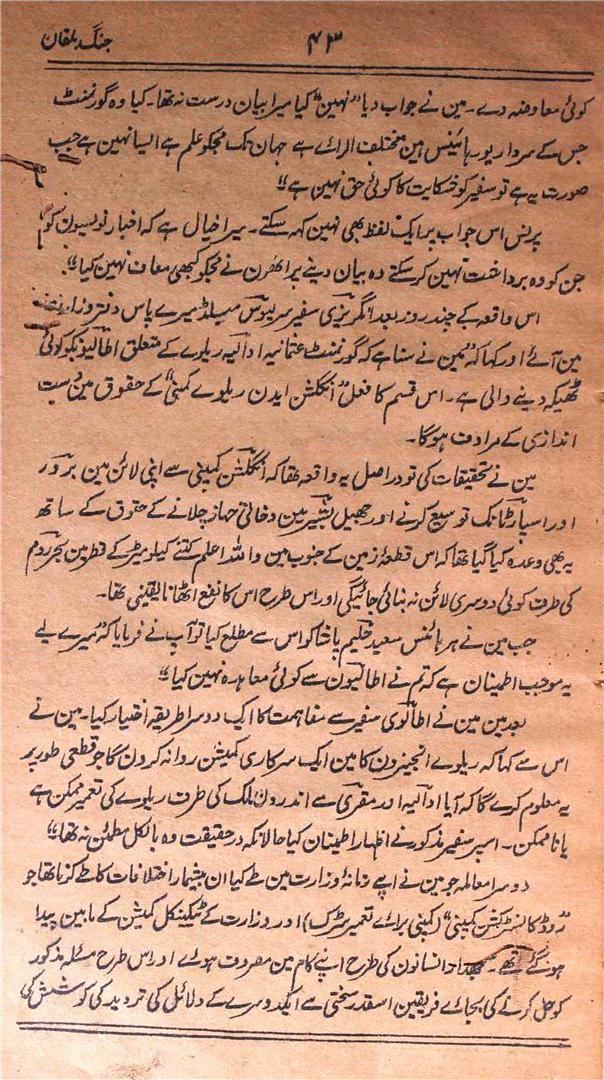 جنگ بلقان
۴۳
کوئی معاوضہ دے۔ مین نے جواب دیا "نہین" کیا میرا بیان درست نہ تھا۔ کیا وہ گورنمنٹ
جس کے سردار یور ہائینس ہین مختلف الرائے ہے جہان تک مجکو علم ہے ایسا نہین ہے جب
صورت یہ ہے تو سفیر کو شکایت کا کوئی حق نہین ہے"
پرنس اس جواب پر ایک لفظ بھی نہین کہہ سکتے۔ میرا خیال ہے کہ اخبار نویسیون کو
جن کو وہ برداشت نہین کر سکتے وہ بیان دینے پر اونھون نے مجکو کبھی معاف نہین کیا"۔
اس واقعہ کے چند روز بعد انگریزی سفیر سر لیوس میلڈ میرے پاس دفتر وزارت
مین آئے اور کہا کہ "مین نے سنا ہے کہ گورنمنٹ عثمانیہ اوالیہ ریلوے کے متعلق اطالیونکو کوئی
ٹھیکہ دینے والی ہے۔ اس قسم کا فعل "انگلش ایدن ریلوے کمپنی" کے حقوق مین دست
اندازی کے مرادف ہوگا۔
مین نے تحقیقات کی تو دراصل یہ واقعہ تھا کہ انگلش کمپنی سے اپنی لائن مین بردور
اور اسپارٹا تک توسیع کرنے اور جھیل بیشہر مین دخانی جہاز چلانے کے حقوق کے ساتھ
یہ بھی وعدہ کیا گیا تھا کہ اس قطعۂ زمین کے جنوب مین واللہ اعلم کتنے کیلومیٹر کے قطر مین بحر روم
کی طرف کوئی دوسری لائن نہ بنائی جائیگی اور اس طرح اس کا نفع اٹھانا یقینی تھا۔
جب مین نے ہر ہائنس سعید حلیم پاشا کو اس سے مطلع کیا تو آپ نے فرمایا کہ "میرے لیے
یہ موجب اطمینان ہے کہ تم نے اطالیون سے کوئی معاہدہ نہین کیا"
بعد مین مین نے اطالوی سفیر سے مفاہمت کا ایک دوسرا طریقہ اختیار کیا۔ مین نے
اس سے کہا کہ ریلوے انجینرون کا مین ایک سرکاری کمیشن روانہ کرون گا جو قطعی طور پر
یہ معلوم کرے گا کہ آیا اوالیہ اور مقری سے اندرون ملک کی طرف ریلوے کی تعمیر ممکن ہے
یا ناممکن۔ اسپر سفیر مذکور نے اظہار اطمینان کیا حالانکہ درحقیقت وہ بالکل مطمئن نہ تھا"
دوسرا معاملہ جو مین نے اپنے زمانۂ وزارت مین طے کیا ان بیشمار اختلافات کا طے کرنا تھا جو
"روڈ کانسٹرکشن کمپنی" (کمپنی برائے تعمیر سڑک) اور وزارت کے ٹیکنیکل کمیشن کے مابین پیدا
ہو گئے تھے۔ سمجھدار انسانون کی طرح اپنے کام مین مصروف ہونے اور اس طرح مسئلہ مذکور
کو حل کرنے کی بجائے فریقین اسقدر سختی سے ایکدوسرے کے دلائل کی تردید کی کوشش کی